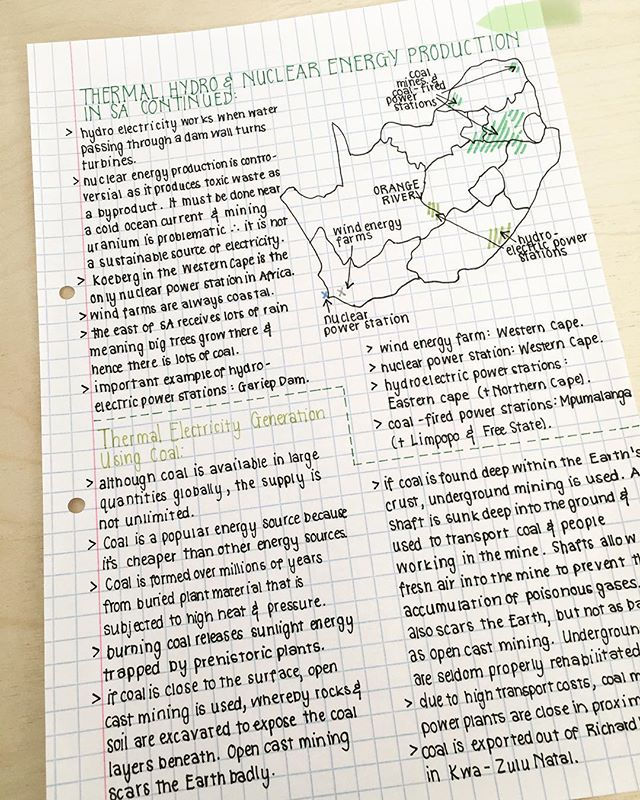 THERMAL, HYDRO & NUCLEAR ENERGY PRODUCTION
IN SA CONTINUED:
> hydro electricity works when water
passing through a dam wall turns
turbines.
> nuclear energy production is contro-
versial as it produces toxic waste as
a byproduct. It must be done near
a cold ocean current & mining
uranium is problematic ∴ it is not
a sustainable source of electricity.
> Koeberg in the Western Cape is the
only nuclear power station in Africa.
> wind farms are always coastal.
> the east of SA receives lots of rain
meaning big trees grow there &
hence there is lots of coal.
> important example of hydro-
electric power stations: Gariep Dam.
coal
mines &
coal-fired
power
stations
ORANGE
RIVER
wind energy
farms
hydro-
electric power
stations
nuclear
power station
> wind energy farm: Western Cape.
> nuclear power station: Western Cape.
> hydroelectric power stations:
Eastern cape (+ Northern Cape).
> coal-fired power stations: Mpumalanga
(+ Limpopo & Free State).
Thermal Electricity Generation
Using Coal:
> although coal is available in large
quantities globally, the supply is
not unlimited.
> Coal is a popular energy source because
it's cheaper than other energy sources.
> Coal is formed over millions of years
from buried plant material that is
subjected to high heat & pressure.
> burning coal releases sunlight energy
trapped by prehistoric plants.
> if coal is close to the surface, open
cast mining is used, whereby rocks &
soil are excavated to expose the coal
layers beneath. Open cast mining
scars the Earth badly.
> if coal is found deep within the Earth's
crust, underground mining is used. A
shaft is sunk deep into the ground &
used to transport coal & people
working in the mine. Shafts allow
fresh air into the mine to prevent
accumulation of poisonous gases.
also scars the Earth, but not as
as open cast mining.
are seldom properly rehabilitated
> due to high transport costs, coal
power plants are close in
> coal is exported out of
in Kwa-Zulu Natal.